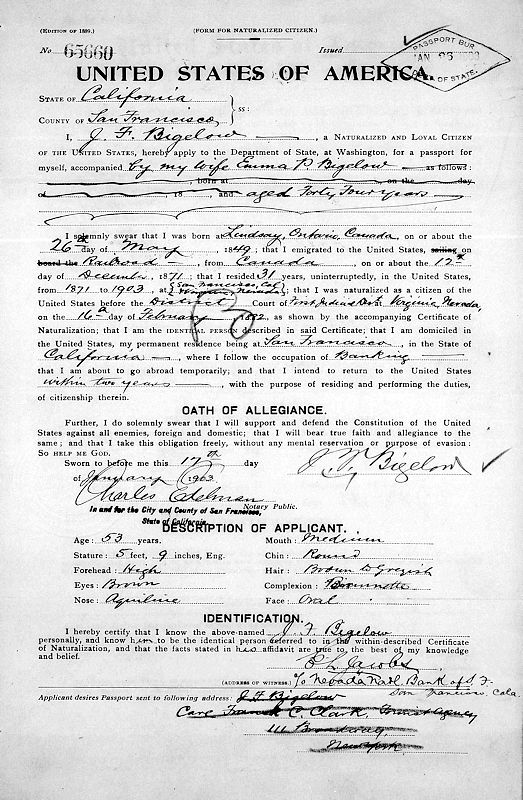 (EDITION OF 1899.) (FORM FOR NATURALIZED CITIZEN.)
No 65660 Issued
PASSPORT BUR.
JAN 26
OF STATE.
UNITED STATES OF AMERICA.
STATE OF California
COUNTY OF San Francisco } ss:
I, J. F. Bigelow, a NATURALIZED AND LOYAL CITIZEN
OF THE UNITED STATES, hereby apply to the Department of State, at Washington, for a passport for
myself, accompanied by my wife Emma P. Bigelow as follows:
born at on the day
of , 18 , and aged Forty Four years
I solemnly swear that I was born at Lindsay, Ontario, Canada, on or about the
26th day of May 1849; that I emigrated to the United States, sailing on
board the Railroad from Canada on or about the 12th
day of December 1871; that I resided 31 years, uninterruptedly, in the United States,
from 1871 to 1903, at San Francisco, Cal Virginia, Nevada; that I was naturalized as a citizen of the
United States before the District Court of First Judicial Dist. Virginia, Nevada,
on the 16th day of February 1882, as shown by the accompanying Certificate of
Naturalization; that I am the IDENTICAL PERSON described in said Certificate; that I am domiciled in
the United States, my permanent residence being at San Francisco, in the State of
California, where I follow the occupation of Banking
that I am about to go abroad temporarily; and that I intend to return to the United States
within two years, with the purpose of residing and performing the duties,
of citizenship therein.
OATH OF ALLEGIANCE.
Further, I do solemnly swear that I will support and defend the Constitution of the United
States against all enemies, foreign and domestic; that I will bear true faith and allegiance to the
same; and that I take this obligation freely, without any mental reservation or purpose of evasion:
SO HELP ME GOD.
Sworn to before me this 17th day
of January 1903 J. F. Bigelow
Charles Edelman
Notary Public.
In and for the City and County of San Francisco,
State of California.
DESCRIPTION OF APPLICANT.
Age: 53 years. Mouth: Medium
Stature: 5 feet, 9 inches, Eng. Chin: Round
Forehead: High Hair: Brown & Greyish
Eyes: Brown Complexion: Brunette
Nose: Aquiline Face: Oval
IDENTIFICATION.
I hereby certify that I know the above-named J. F. Bigelow
personally, and know him to be the identical person referred to in the within-described Certificate
of Naturalization, and that the facts stated in his affidavit are true to the best of my knowledge
and belief.
Jacobs
(ADDRESS OF WITNESS.) c/o Nevada Natl. Bank of S. F.
San Francisco, Cala.
Applicant desires Passport sent to following address: J. F. Bigelow
Care Frank C. Clark, Tourist Agency
111 Broadway
New York